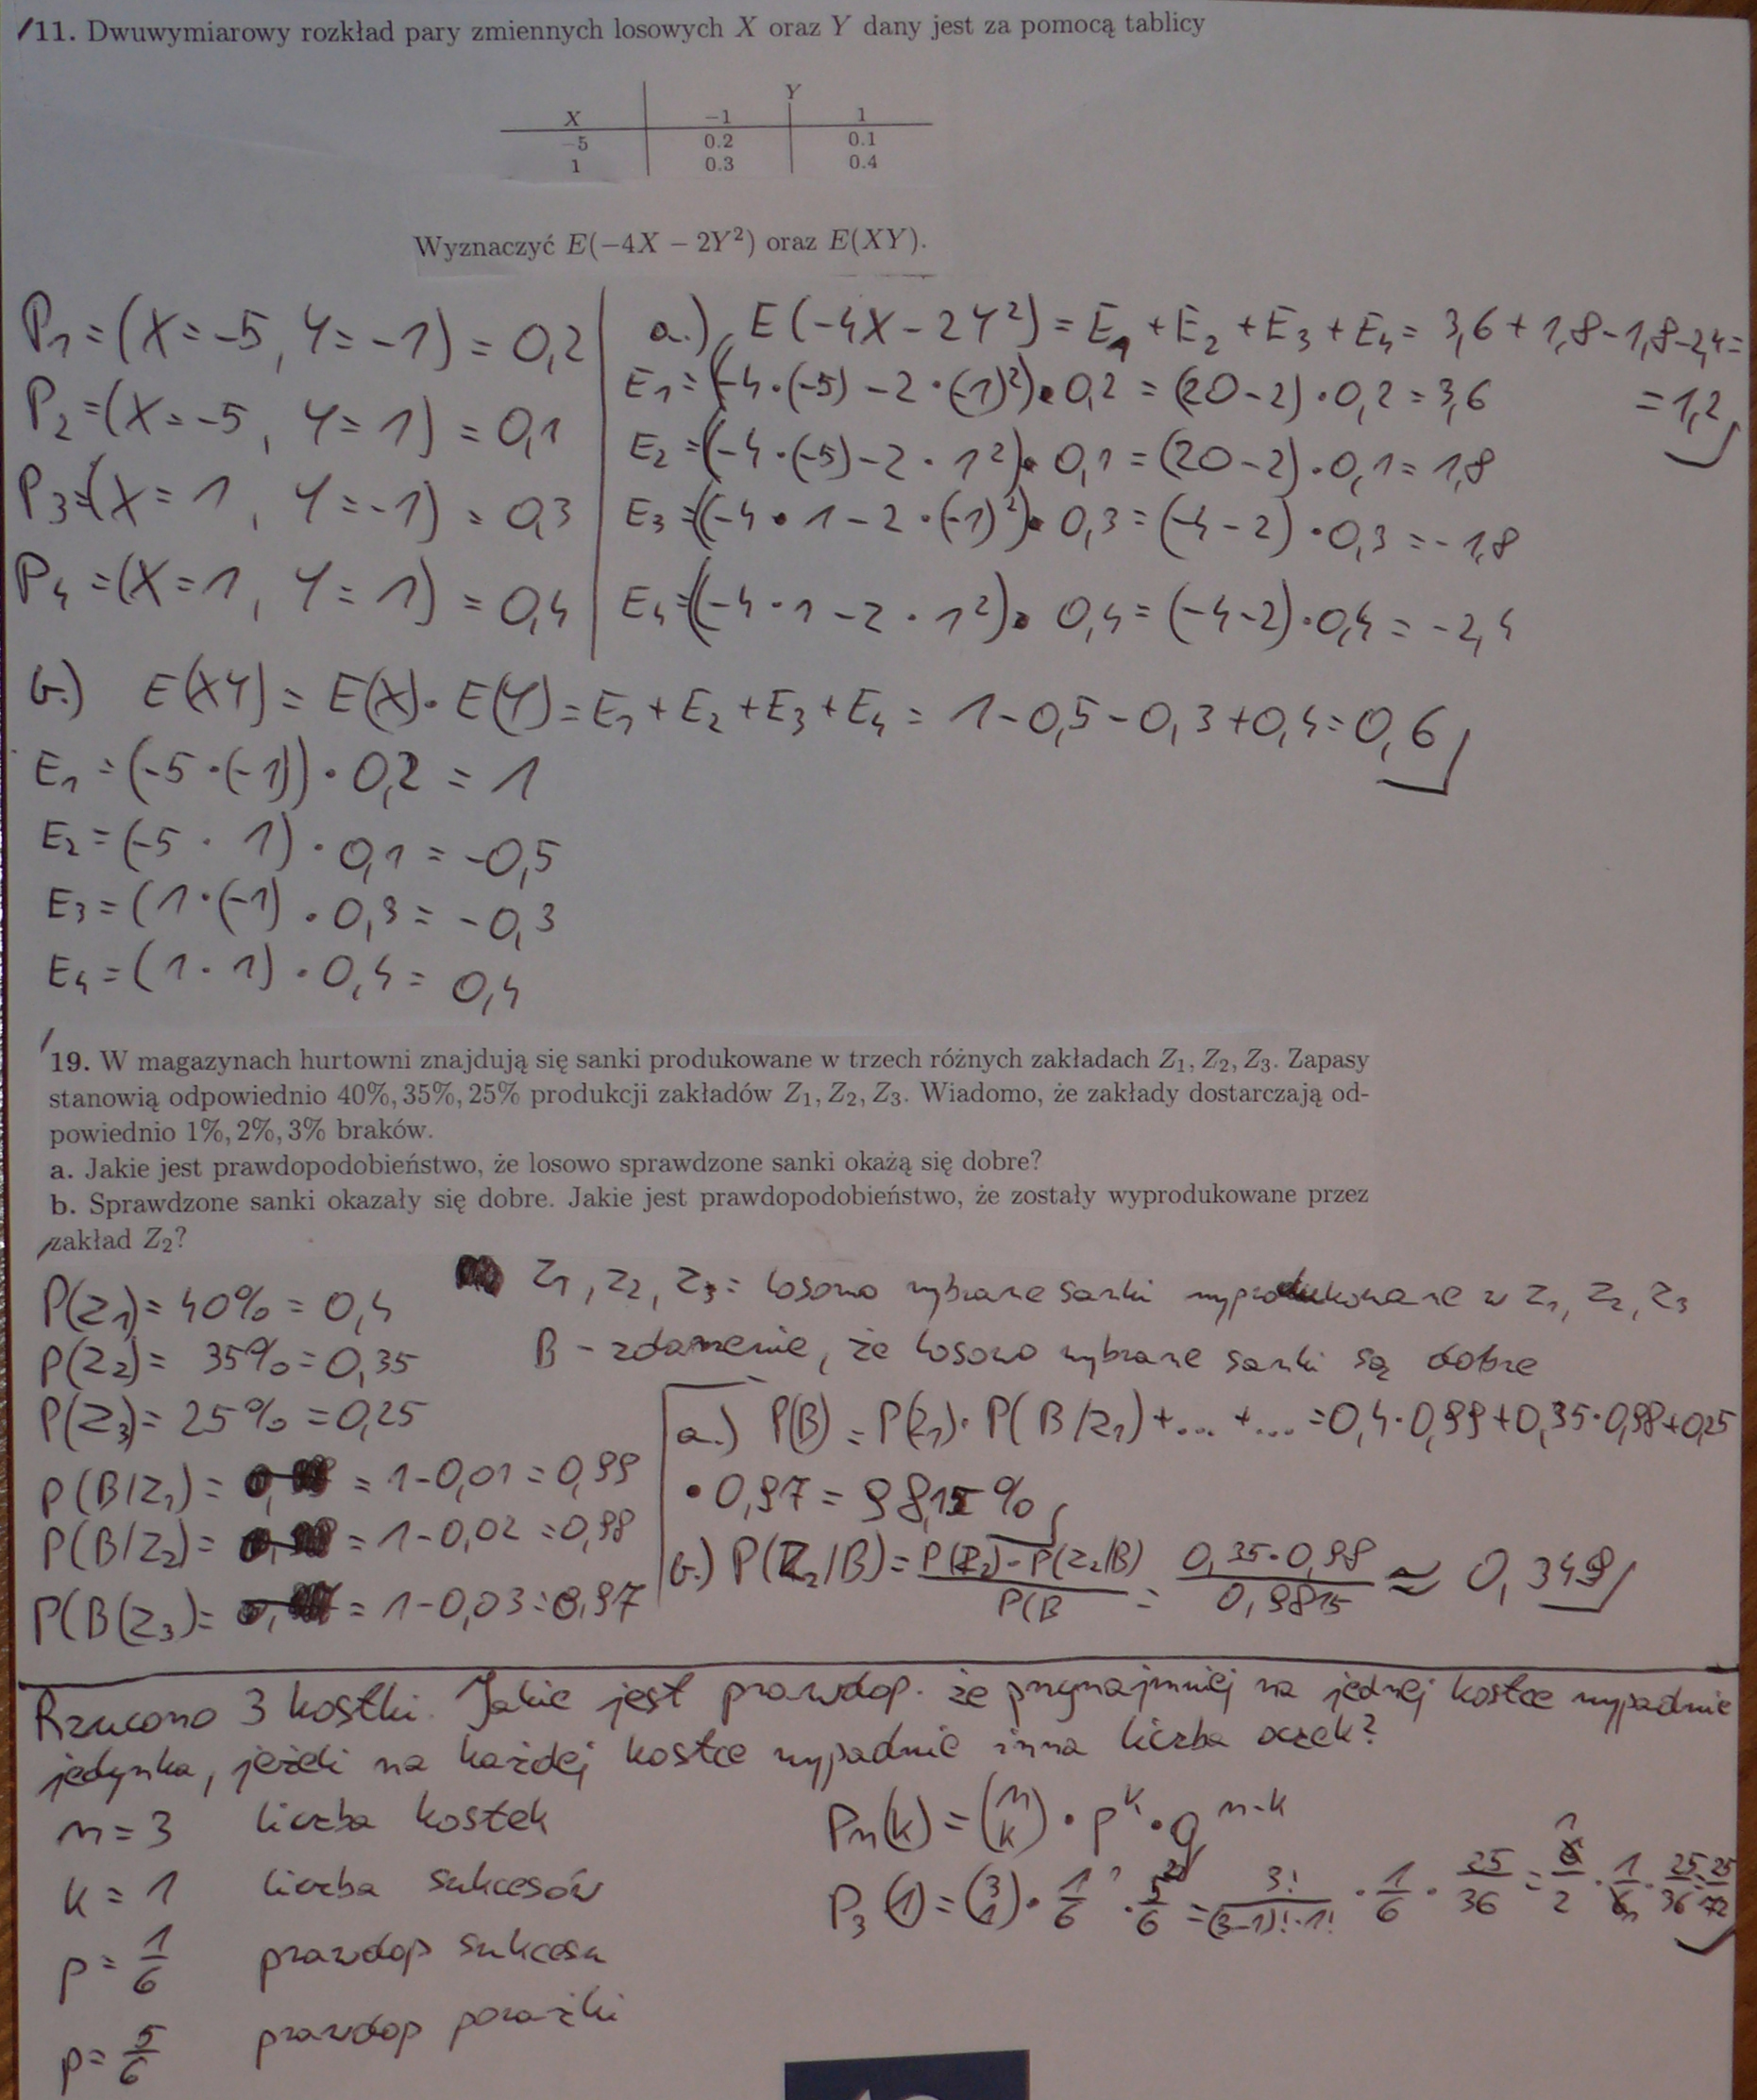 11. Dwuwymiarowy rozkład pary zmiennych losowych X oraz Y dany jest za pomocą tablicy
Y
X −1 1
-5 0.2 0.1
1 0.3 0.4
Wyznaczyć E(−4X − 2Y²) oraz E(XY).
P₁=(X=-5, Y=-1)=0,2
P₂=(X=-5, Y=1)=0,1
P₃=(X=1, Y=-1)=0,3
P₄=(X=1, Y=1)=0,4
a.) E(-4X-2Y²)=E₁+E₂+E₃+E₄=3,6+1,8-1,8-2,4=
=1,2
E₁=(-4·(-5)-2·(-1)²)·0,2=(20-2)·0,2=3,6
E₂=(-4·(-5)-2·1²)·0,1=(20-2)·0,1=1,8
E₃=(-4·1-2·(-1)²)·0,3=(-4-2)·0,3=-1,8
E₄=(-4·1-2·1²)·0,4=(-4-2)·0,4=-2,4
b.) E(XY)=E(X)·E(Y)=E₁+E₂+E₃+E₄=1-0,5-0,3+0,4=0,6
E₁=(-5·(-1))·0,2=1
E₂=(-5·1)·0,1=-0,5
E₃=(1·(-1)·0,3=-0,3
E₄=(1·1)·0,4=0,4
19. W magazynach hurtowni znajdują się sanki produkowane w trzech różnych zakładach Z₁, Z₂, Z₃. Zapasy
stanowią odpowiednio 40%, 35%, 25% produkcji zakładów Z₁, Z₂, Z₃. Wiadomo, że zakłady dostarczają od-
powiednio 1%, 2%, 3% braków.
a. Jakie jest prawdopodobieństwo, że losowo sprawdzone sanki okażą się dobre?
b. Sprawdzone sanki okazały się dobre. Jakie jest prawdopodobieństwo, że zostały wyprodukowane przez
zakład Z₂?
P(Z₁)=40%=0,4
P(Z₂)=35%=0,35
P(Z₃)=25%=0,25
P(B/Z₁)= =1-0,01=0,99
P(B/Z₂)= =1-0,02=0,98
P(B(Z₃)= =1-0,03=0,97
Z₁, Z₂, Z₃= losowo wybrane sanki wyprodukowane w Z₁, Z₂, Z₃
B - zdarzenie, że losowo wybrane sanki są dobre
a.) P(B)=P(Z₁)·P(B/Z₁)+...+...=0,4·0,99+0,35·0,98+0,25
·0,97=98,15%
b.) P(Z₂/B)=P(Z₂)·P(Z₂/B)/P(B=0,35·0,98/0,9815≈0,349
Rzucono 3 kostki. Jakie jest prawdop. że przynajmniej na jednej kostce wypadnie
jedynka, jeżeli na każdej kostce wypadnie inna liczba oczek?
n=3 liczba kostek
k=1 liczba sukcesów
p=1/6 prawdop sukcesu
p=5/6 prawdop porażki
Pₙ(k)=(n k)·p^k·q^n-k
P₃(1)=(3 1)·1/6¹·5/6²=3!/(3-1)!·1!·1/6·25/36=6/2·1/6·25/36=25/72